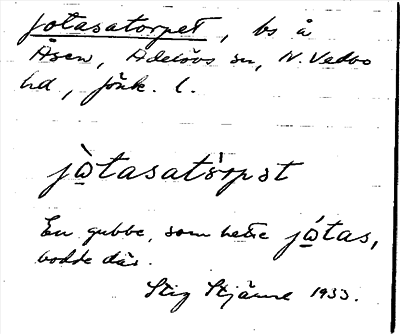 Jotasatorpet, bs å
Åsen, Adelövs sn, N. Vedbo
hd, Jönk. l.
jò̲tasató̀rpət
En gubbe, som hette jó̲tas,
bodde där.
Stig Stjärne 1933.